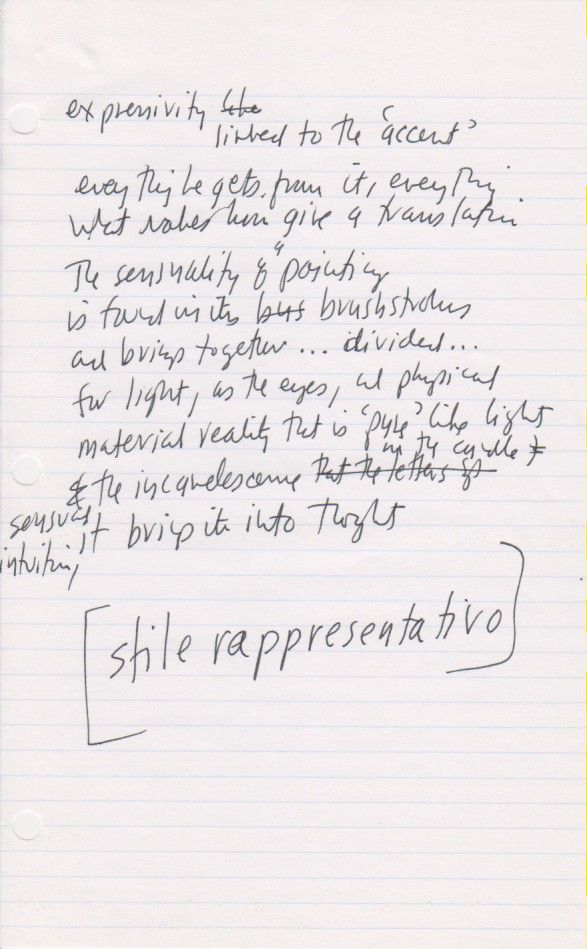 expressivity
linked to the "accent"
everything he gets from it, everything
what makes him give a translation
The sensuality of "painting
is found in its brushstrokes
and brings together ... divided ...
for light, as the eyes, and physical
material reality that is 'pure' like light
in the candle
& the incandescence that the letters of
sensual
intuition, it brings it into thought
[stile rappresentativo]